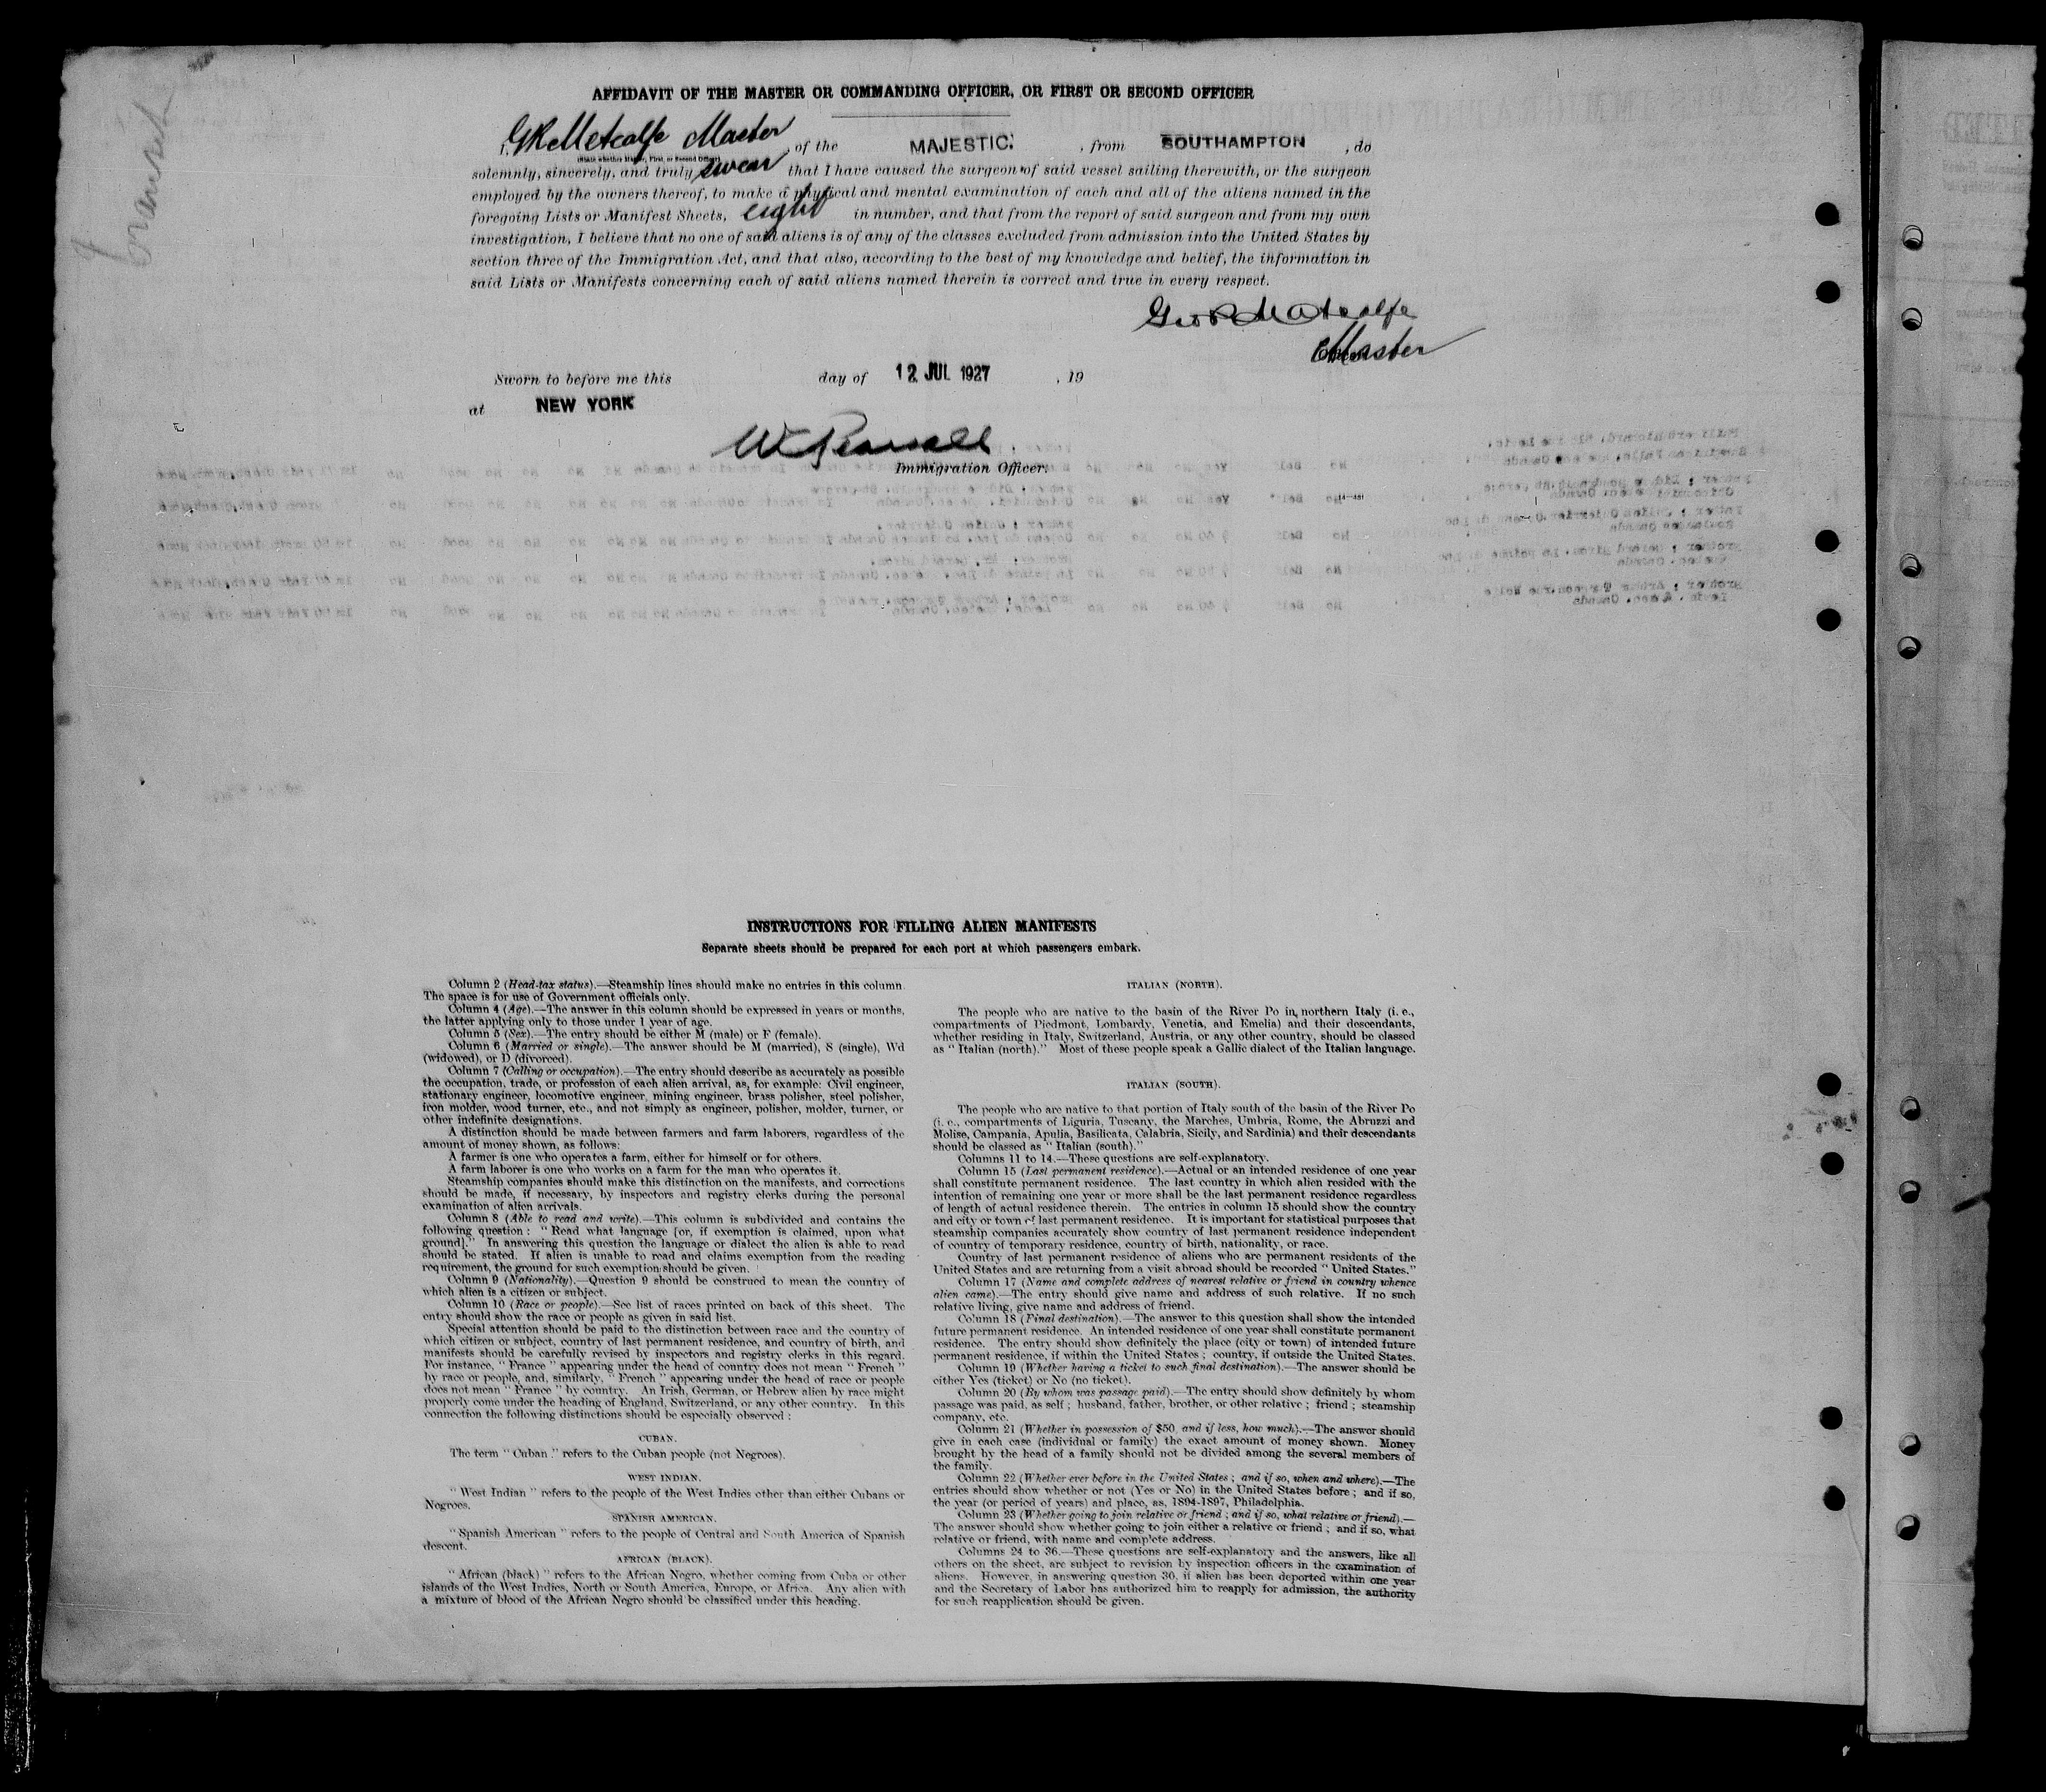 AFFIDAVIT OF THE MASTER OR COMMANDING OFFICER, OR FIRST OR SECOND OFFICER
I, G R Metcalfe Master, of the MAJESTIC, from SOUTHAMPTON, do
(State whether Master, First, or Second Officer)
solemnly, sincerely, and truly swear that I have caused the surgeon of said vessel sailing therewith, or the surgeon
employed by the owners thereof, to make a physical and mental examination of each and all of the aliens named in the
foregoing Lists or Manifest Sheets, eight in number, and that from the report of said surgeon and from my own
investigation, I believe that no one of said aliens is of any of the classes excluded from admission into the United States by
section three of the Immigration Act, and that also, according to the best of my knowledge and belief, the information in
said Lists or Manifests concerning each of said aliens named therein is correct and true in every respect.
Geo R Metcalfe
Master
Sworn to before me this day of 12 JUL 1927, 19
at NEW YORK
Immigration Officer.
transit
INSTRUCTIONS FOR FILLING ALIEN MANIFESTS
Separate sheets should be prepared for each port at which passengers embark.
Column 2 (Head-tax status).—Steamship lines should make no entries in this column.
The space is for use of Government officials only.
Column 4 (Age).—The answer in this column should be expressed in years or months,
the latter applying only to those under 1 year of age.
Column 5 (Sex).—The entry should be either M (male) or F (female).
Column 6 (Married or single).—The answer should be M (married), S (single), Wd
(widowed), or D (divorced).
Column 7 (Calling or occupation).—The entry should describe as accurately as possible
the occupation, trade, or profession of each alien arrival, as, for example: Civil engineer,
stationary engineer, locomotive engineer, mining engineer, brass polisher, steel polisher,
iron molder, wood turner, etc., and not simply as engineer, polisher, molder, turner, or
other indefinite designations.
A distinction should be made between farmers and farm laborers, regardless of the
amount of money shown, as follows:
A farmer is one who operates a farm, either for himself or for others.
A farm laborer is one who works on a farm for the man who operates it.
Steamship companies should make this distinction on the manifests, and corrections
should be made, if necessary, by inspectors and registry clerks during the personal
examination of alien arrivals.
Column 8 (Able to read and write).—This column is subdivided and contains the
following question : " Read what language [or, if exemption is claimed, upon what
ground]." In answering this question the language or dialect the alien is able to read
should be stated. If alien is unable to read and claims exemption from the reading
requirement, the ground for such exemption should be given.
Column 9 (Nationality).—Question 9 should be construed to mean the country of
which alien is a citizen or subject.
Column 10 (Race or people).—See list of races printed on back of this sheet. The
entry should show the race or people as given in said list.
Special attention should be paid to the distinction between race and the country of
which citizen or subject, country of last permanent residence, and country of birth, and
manifests should be carefully revised by inspectors and registry clerks in this regard.
For instance, " France " appearing under the head of country does not mean " French "
by race or people, and, similarly, " French " appearing under the head of race or people
does not mean " France " by country. An Irish, German, or Hebrew alien by race might
properly come under the heading of England, Switzerland, or any other country. In this
connection the following distinctions should be especially observed :
CUBAN.
The term " Cuban " refers to the Cuban people (not Negroes).
WEST INDIAN.
" West Indian " refers to the people of the West Indies other than either Cubans or
Negroes.
SPANISH AMERICAN.
" Spanish American " refers to the people of Central and South America of Spanish
descent.
AFRICAN (BLACK).
" African (black) " refers to the African Negro, whether coming from Cuba or other
islands of the West Indies, North or South America, Europe, or Africa. Any alien with
a mixture of blood of the African Negro should be classified under this heading.
ITALIAN (NORTH).
The people who are native to the basin of the River Po in northern Italy (i. e.,
compartments of Piedmont, Lombardy, Venetia, and Emelia) and their descendants,
whether residing in Italy, Switzerland, Austria, or any other country, should be classed
as " Italian (north)." Most of these people speak a Gallic dialect of the Italian language.
ITALIAN (SOUTH).
The people who are native to that portion of Italy south of the basin of the River Po
(i. e., compartments of Liguria, Tuscany, the Marches, Umbria, Rome, the Abruzzi and
Molise, Campania, Apulia, Basilicata, Calabria, Sicily, and Sardinia) and their descendants
should be classed as " Italian (south)."
Columns 11 to 14.—These questions are self-explanatory.
Column 15 (Last permanent residence).—Actual or an intended residence of one year
shall constitute permanent residence. The last country in which alien resided with the
intention of remaining one year or more shall be the last permanent residence regardless
of length of actual residence therein. The entries in column 15 should show the country
and city or town of last permanent residence. It is important for statistical purposes that
steamship companies accurately show country of last permanent residence independent
of country of temporary residence, country of birth, nationality, or race.
Country of last permanent residence of aliens who are permanent residents of the
United States and are returning from a visit abroad should be recorded " United States."
Column 17 (Name and complete address of nearest relative or friend in country whence
alien came).—The entry should give name and address of such relative. If no such
relative living, give name and address of friend.
Column 18 (Final destination).—The answer to this question shall show the intended
future permanent residence. An intended residence of one year shall constitute permanent
residence. The entry should show definitely the place (city or town) of intended future
permanent residence, if within the United States ; country, if outside the United States.
Column 19 (Whether having a ticket to such final destination).—The answer should be
either Yes (ticket) or No (no ticket).
Column 20 (By whom was passage paid).—The entry should show definitely by whom
passage was paid, as self ; husband, father, brother, or other relative ; friend ; steamship
company, etc.
Column 21 (Whether in possession of $50, and if less, how much).—The answer should
give in each case (individual or family) the exact amount of money shown. Money
brought by the head of a family should not be divided among the several members of
the family.
Column 22 (Whether ever before in the United States ; and if so, when and where).—The
entries should show whether or not (Yes or No) in the United States before ; and if so,
the year (or period of years) and place, as, 1894-1897, Philadelphia.
Column 23 (Whether going to join relative or friend ; and if so, what relative or friend).—
The answer should show whether going to join either a relative or friend ; and if so, what
relative or friend, with name and complete address.
Columns 24 to 36.—These questions are self-explanatory and the answers, like all
others on the sheet, are subject to revision by inspection officers in the examination of
aliens. However, in answering question 30, if alien has been deported within one year
and the Secretary of Labor has authorized him to reapply for admission, the authority
for such reapplication should be given.